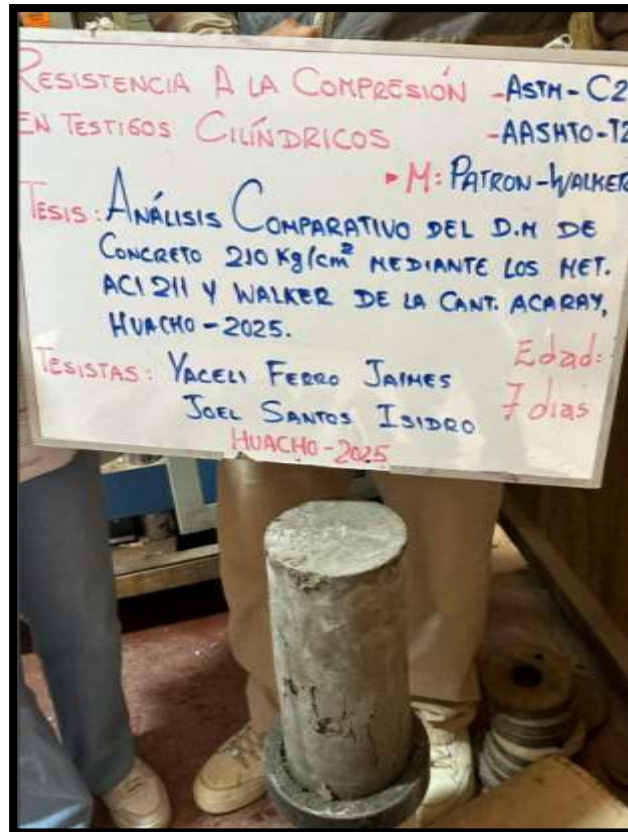 RESISTENCIA A LA COMPRESIÓN - ASTM - C2
EN TESTIGOS CILÍNDRICOS - AASHTO - T2
▸ M: PATRON - WALKER
TESIS: ANÁLISIS COMPARATIVO DEL D.M DE
CONCRETO 210 Kg/cm² MEDIANTE LOS MET.
ACI 211 Y WALKER DE LA CANT. ACARAY,
HUACHO - 2025.
Edad:
7 dias
TESISTAS: YACELI FERRO JAIMES
JOEL SANTOS ISIDRO
HUACHO - 2025